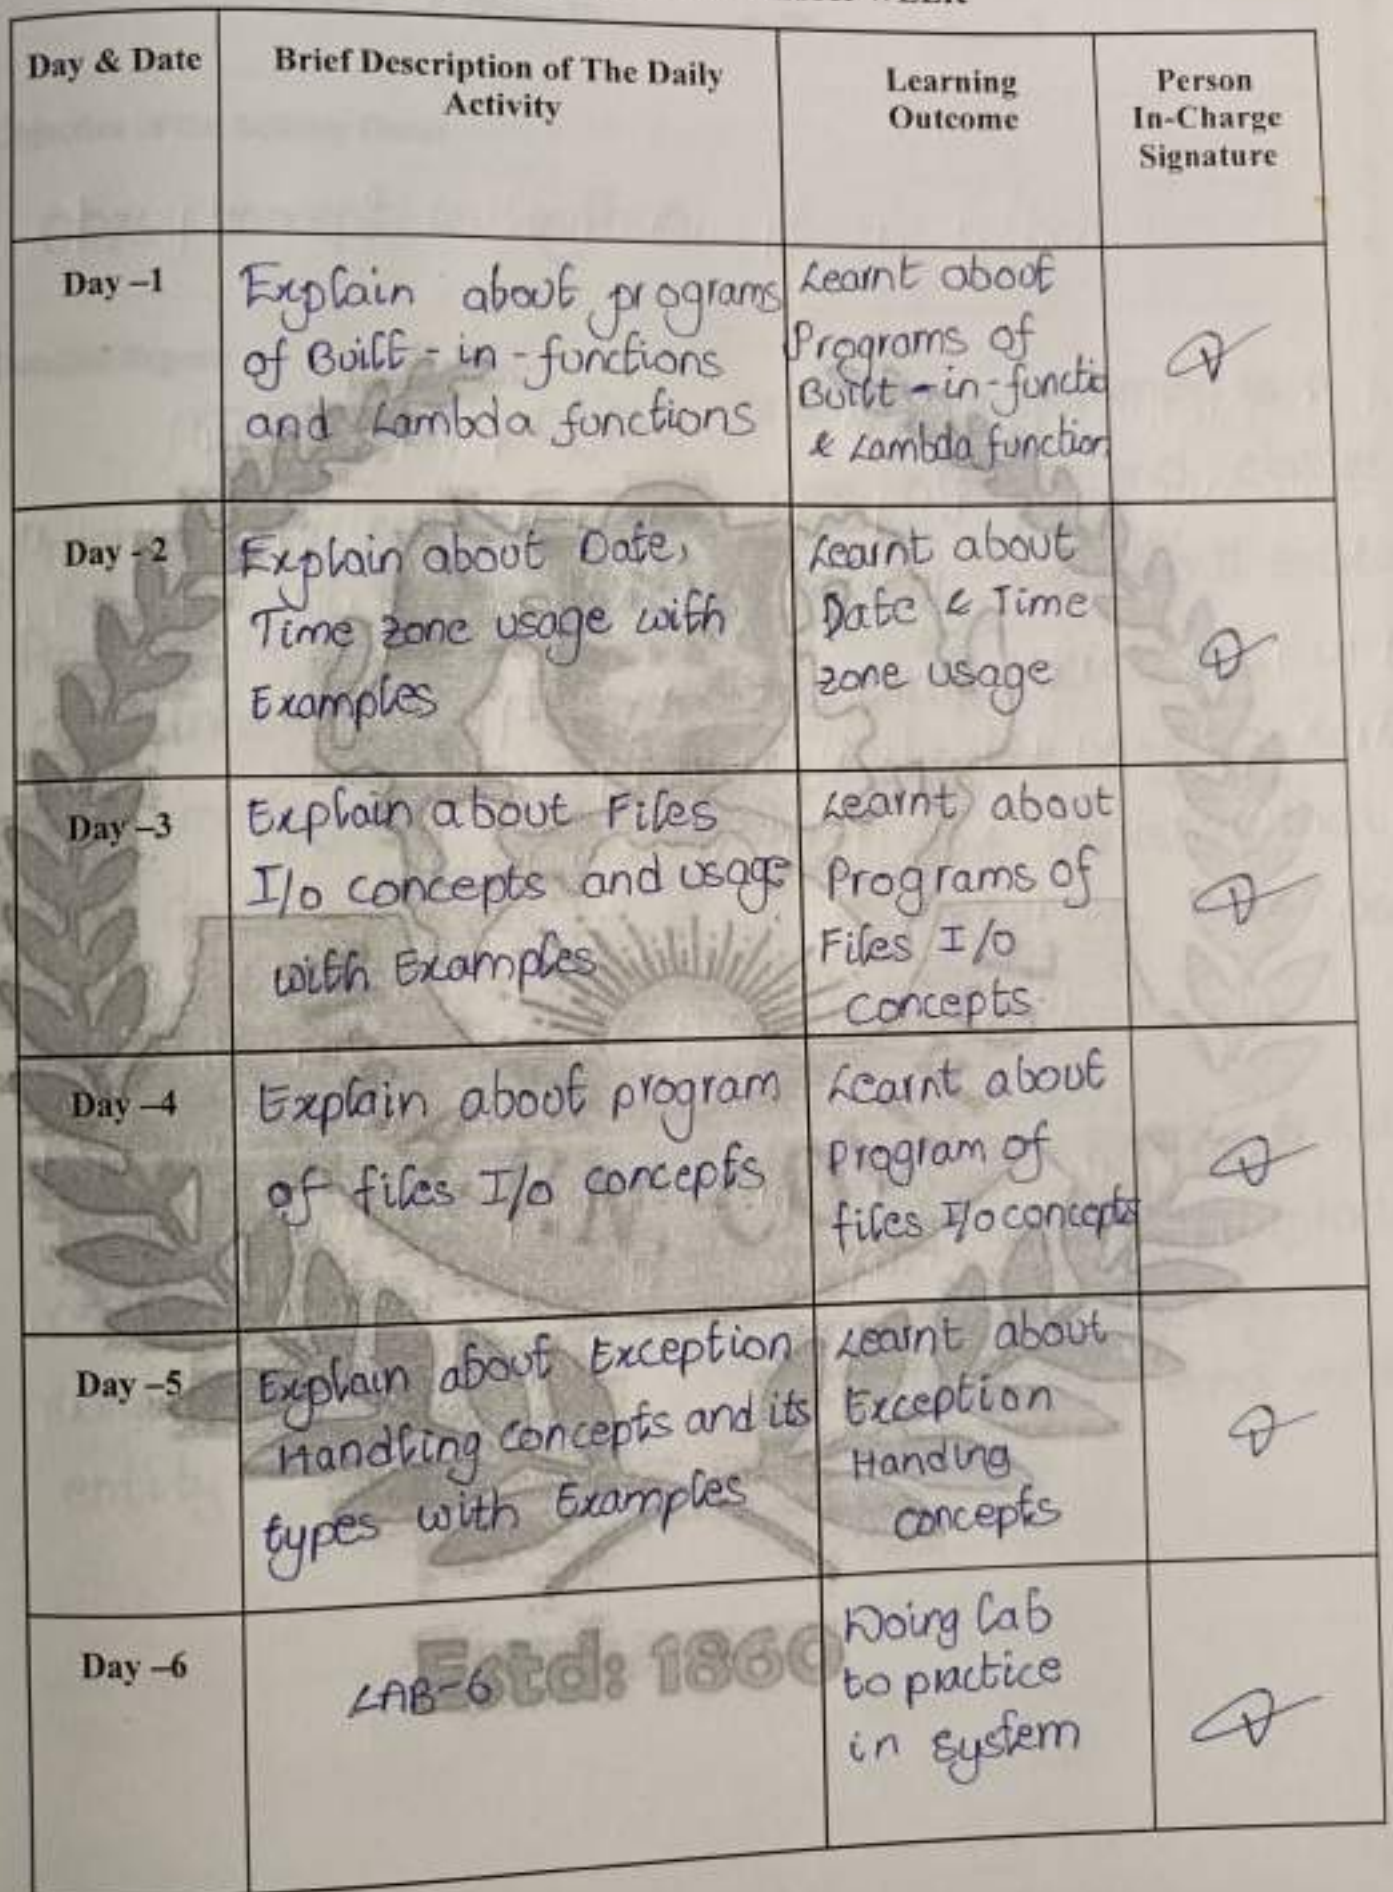 WEEK
Day & Date
Brief Description of The Daily
Activity
Learning
Outcome
Person
In-Charge
Signature
Day –1
Explain about programs
of Built-in-functions
and Lambda functions
Learnt about
Programs of
Built-in-functio
& Lambda function
Day - 2
Explain about Date,
Time zone usage with
Examples
Learnt about
Date & Time
zone usage
Day –3
Explain about Files
I/o concepts and usage
with Examples
Learnt about
Programs of
Files I/o
Concepts
Day –4
Explain about program
of files I/o concepts
Learnt about
Program of
files I/o concepts
Day –5
Explain about Exception
Handling concepts and its
types with Examples
Learnt about
Exception
Handling
concepts
Day –6
LAB-6
Doing Lab
to practice
in system
Estd: 1860